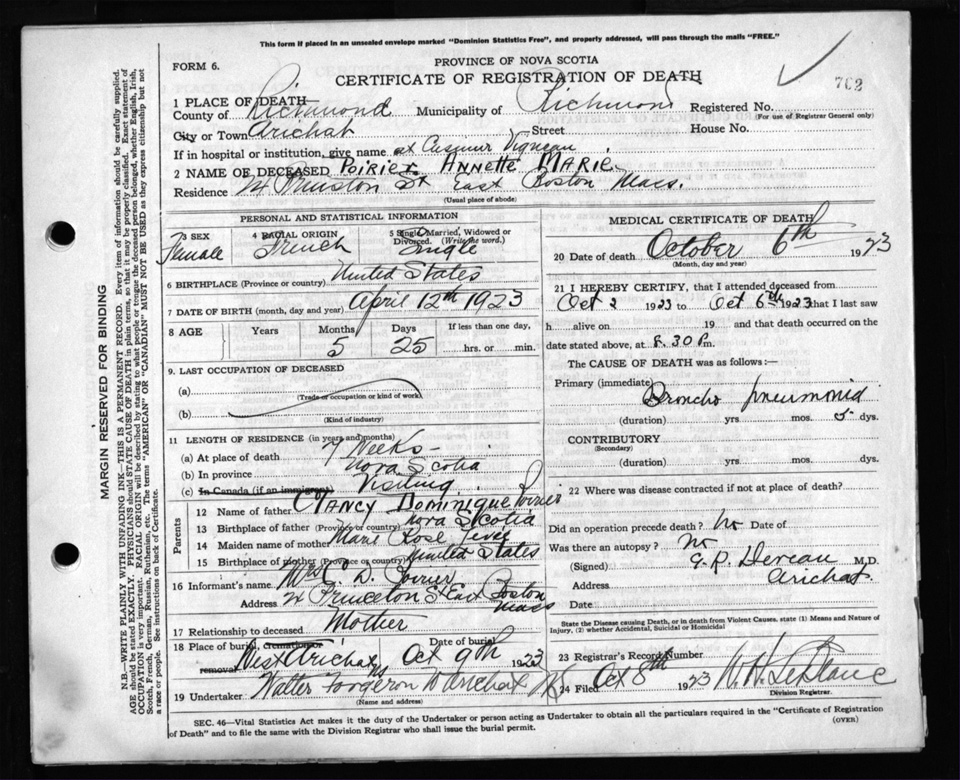 This form if placed in an unsealed envelope marked "Dominion Statistics Free", and properly addressed, will pass through the mails "FREE."
PROVINCE OF NOVA SCOTIA
FORM 6.
CERTIFICATE OF REGISTRATION OF DEATH
702
1 PLACE OF DEATH—
County of Richmond Municipality of Richmond Registered No.
(For use of Registrar General only)
City or Town Arichat Street House No.
If in hospital or institution, give name at Casimir Vigneau
2 NAME OF DECEASED POIRIER, ANNETTE MARIE
Residence St East Boston Mass.
(Usual place of abode)
PERSONAL AND STATISTICAL INFORMATION
3 SEX Female 4 RACIAL ORIGIN French 5 Single, Married, Widowed or Divorced. (Write the word.) Single
6 BIRTHPLACE (Province or country) United States
7 DATE OF BIRTH (month, day and year) April 12th 1923
8 AGE Years Months 5 Days 25 If less than one day, hrs. or min.
9. LAST OCCUPATION OF DECEASED
(a)
(Trade or occupation or kind of work)
(b)
(Kind of industry)
11 LENGTH OF RESIDENCE (in years and months)
(a) At place of death 7 Weeks
(b) In province Nova Scotia
(c) In Canada (if an immigrant) Visiting
Parents
12 Name of father CLANCY DOMINIQUE Poirier
13 Birthplace of father (Province or country) Nova Scotia
14 Maiden name of mother Marie Rose
15 Birthplace of mother (Province or country) United States
16 Informant's name Mrs C. D. Poirier
Address 24 Princeton St East Boston Mass
17 Relationship to deceased Mother
18 Place of burial, cremation or removal West Arichat Date of burial Oct 9th 1923
19 Undertaker Walter Forgeron W Arichat NS
(Name and address)
MEDICAL CERTIFICATE OF DEATH
20 Date of death October 6th 1923
(Month, day and year)
21 I HEREBY CERTIFY, that I attended deceased from
Oct 2 1923 to Oct 6th 1923 that I last saw
h alive on 19 and that death occurred on the
date stated above, at 8.30 P.m.
The CAUSE OF DEATH was as follows:—
Primary (immediate) Broncho pneumonia
(duration) yrs mos. 5 dys.
CONTRIBUTORY
(Secondary)
(duration) yrs. mos. dys.
22 Where was disease contracted if not at place of death?
Did an operation precede death? No Date of
Was there an autopsy? No
(Signed) G. R. Deveau M.D.
Address Arichat
Date
State the Disease causing Death, or in death from Violent Causes, state (1) Means and Nature of
Injury, (2) whether Accidental, Suicidal or Homicidal
23 Registrar's Record Number
24 Filed Oct 8th 1923 W. H. LeBlanc
Division Registrar.
SEC. 46—Vital Statistics Act makes it the duty of the Undertaker or person acting as Undertaker to obtain all the particulars required in the "Certificate of Registration
of Death" and to file the same with the Division Registrar who shall issue the burial permit.
(OVER)
MARGIN RESERVED FOR BINDING
N.B.—WRITE PLAINLY WITH UNFADING INK—THIS IS A PERMANENT RECORD. Every item of information should be carefully supplied.
AGE should be stated EXACTLY. PHYSICIANS should STATE CAUSE OF DEATH in plain terms, so that it may be properly classified. Exact statement of
OCCUPATION is very important. RACIAL ORIGIN will be described by stating to what people or tongue the deceased person belonged, whether English, Irish,
Scotch, French, German, Russian, Ruthenian, etc. The terms "AMERICAN" OR "CANADIAN" MUST NOT BE USED as they express citizenship but not
a race or people. See instructions on back of Certificate.